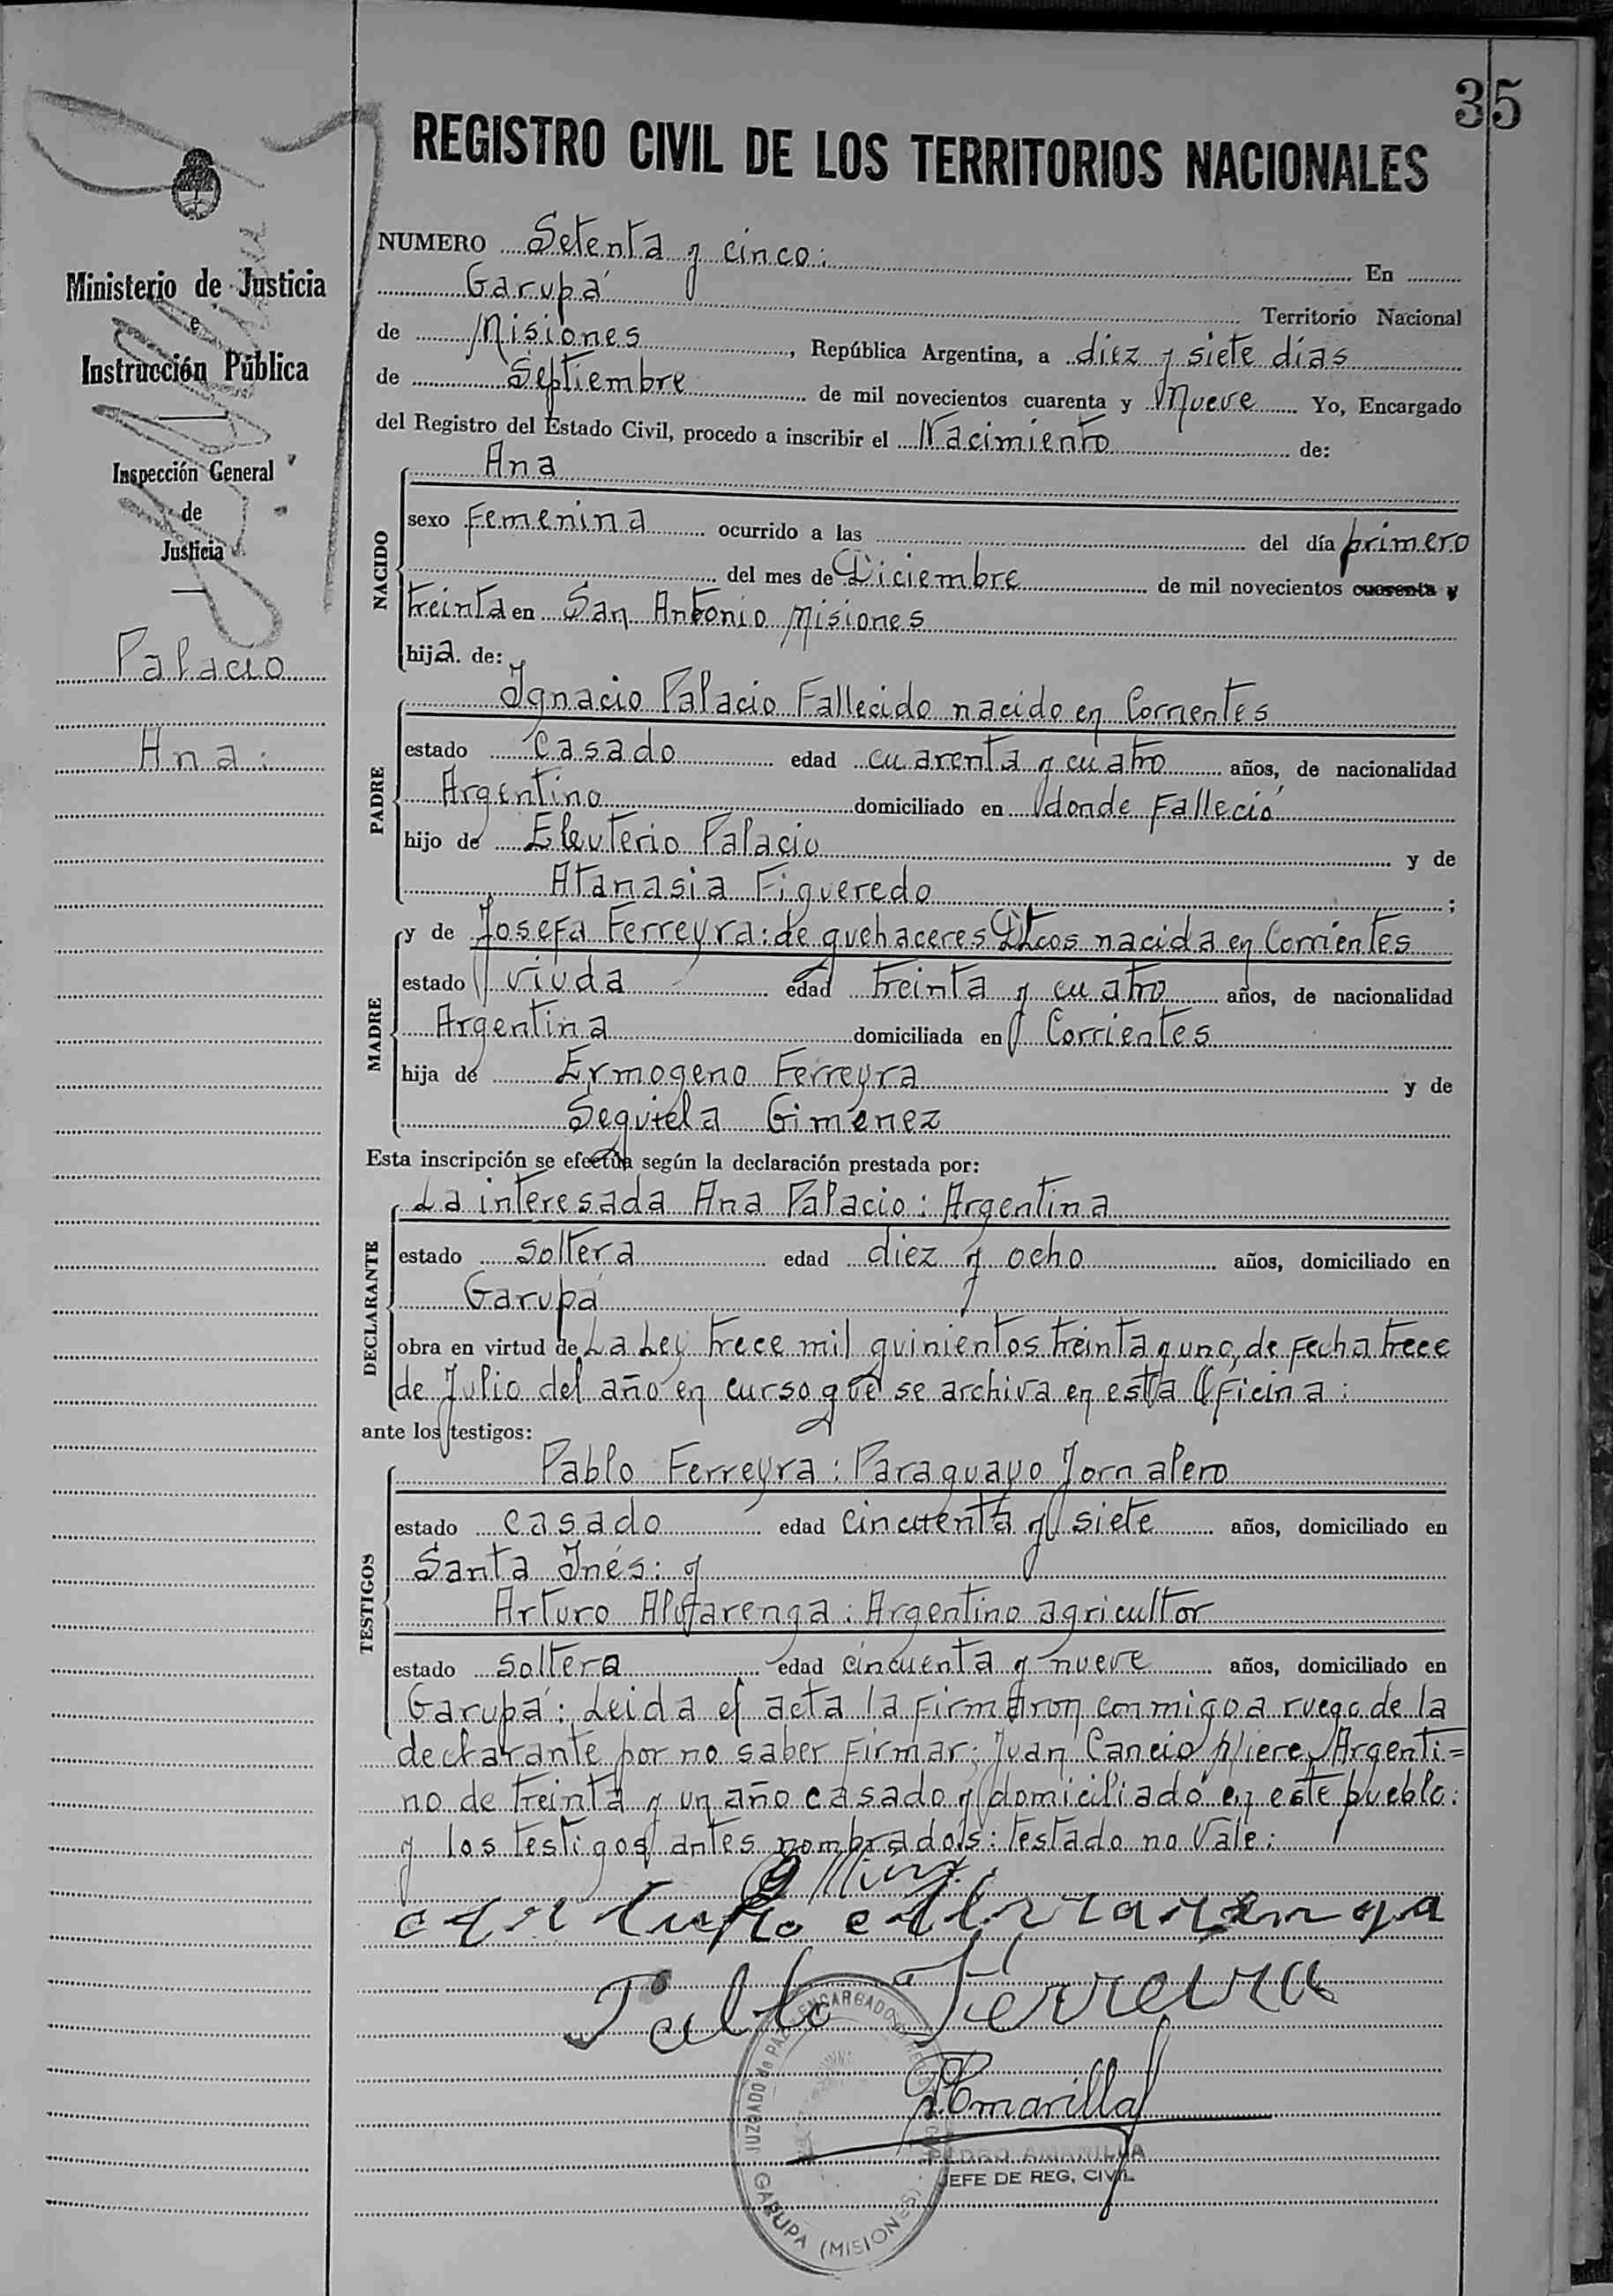 35
REGISTRO CIVIL DE LOS TERRITORIOS NACIONALES
Ministerio de Justicia
e
Instrucción Pública
Inspección General
de
Justicia
Palacio
Ana:
NUMERO Setenta y cinco: En
Garupá Territorio Nacional
de Misiones, República Argentina, a diez y siete días
de Septiembre de mil novecientos cuarenta y Nueve Yo, Encargado
del Registro del Estado Civil, procedo a inscribir el Nacimiento de:
NACIDO
Ana
sexo Femenina ocurrido a las del día primero
del mes de Diciembre de mil novecientos cuarenta y
treinta en San Antonio Misiones
hija. de:
PADRE
Ignacio Palacio Fallecido nacido en Corrientes
estado Casado edad cuarenta y cuatro años, de nacionalidad
Argentino domiciliado en donde Falleció
hijo de Eleuterio Palacio y de
Atanasia Figueredo;
MADRE
y de Josefa Ferreyra: de quehaceres Dtcos nacida en Corrientes
estado viuda edad treinta y cuatro años, de nacionalidad
Argentina domiciliada en Corrientes
hija de Ermogeno Ferreyra y de
Sequiela Giménez
Esta inscripción se efectúa según la declaración prestada por:
DECLARANTE
La interesada Ana Palacio: Argentina
estado Soltera edad diez y ocho años, domiciliado en
Garupá
obra en virtud de La Ley trece mil quinientos treinta y uno, de Fecha trece
de Julio del año en curso que se archiva en esta Oficina:
ante los testigos:
TESTIGOS
Pablo Ferreyra: Paraguayo Jornalero
estado casado edad cincuenta y siete años, domiciliado en
Santa Inés: y
Arturo Alvarenga: Argentino agricultor
estado soltera edad cincuenta y nueve años, domiciliado en
Garupá: Leida el acta la Firmaron conmigo a ruego de la
declarante por no saber Firmar; Juan Cancio Argenti=
no de treinta y un año casado y domiciliado en este pueblo:
y los testigos antes nombrados: testado no Vale:
Pablo Ferreira
P Amarilla
PEDRO AMARILLA
JEFE DE REG. CIVIL
JUZGADO de PAZ ENCARGADO
GARUPA (MISIONES)